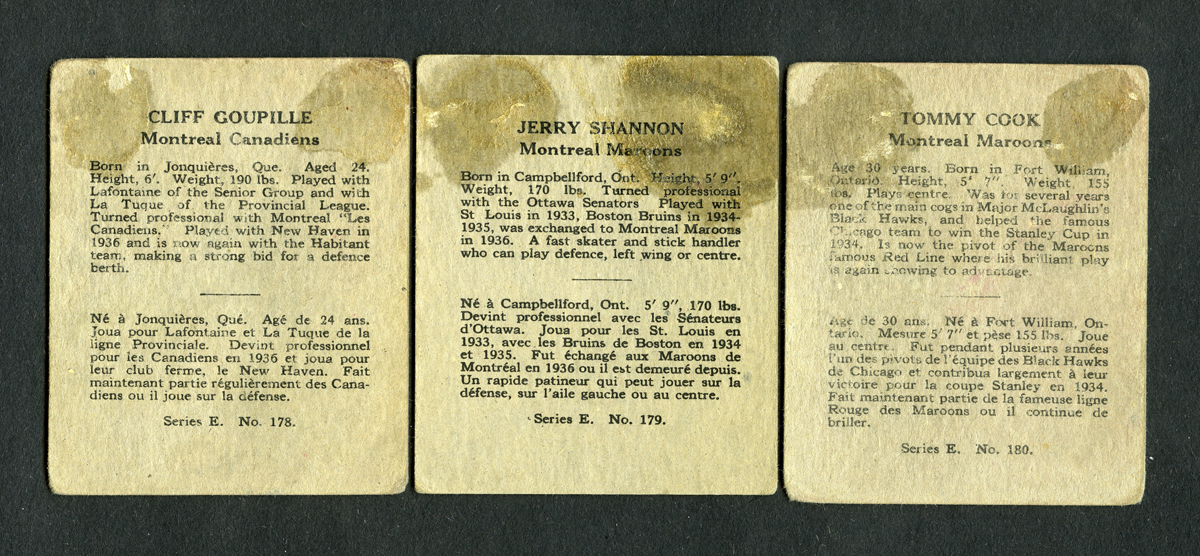 CLIFF GOUPILLE
Montreal Canadiens
Born in Jonquières, Que. Aged 24.
Height, 6′. Weight, 190 lbs. Played with
Lafontaine of the Senior Group and with
La Tuque of the Provincial League.
Turned professional with Montreal "Les
Canadiens," Played with New Haven in
1936 and is now again with the Habitant
team, making a strong bid for a defence
berth.
Né à Jonquières, Qué. Agé de 24 ans.
Joua pour Lafontaine et La Tuque de la
ligne Provinciale. Devint professionnel
pour les Canadiens en 1936 et joua pour
leur club ferme, le New Haven. Fait
maintenant partie régulièrement des Cana-
diens ou il joue sur la défense.
Series E. No. 178.
JERRY SHANNON
Montreal Maroons
Born in Campbellford, Ont. Height, 5′ 9″.
Weight, 170 lbs. Turned professional
with the Ottawa Senators Played with
St Louis in 1933, Boston Bruins in 1934-
1935, was exchanged to Montreal Maroons
in 1936. A fast skater and stick handler
who can play defence, left wing or centre.
Né à Campbellford, Ont. 5′ 9″, 170 lbs.
Devint professionnel avec les Sénateurs
d'Ottawa. Joua pour les St. Louis en
1933, avec les Bruins de Boston en 1934
et 1935. Fut échangé aux Maroons de
Montréal en 1936 ou il est demeuré depuis.
Un rapide patineur qui peut jouer sur la
défense, sur l'aile gauche ou au centre.
Series E. No. 179.
TOMMY COOK
Montreal Maroons
Age 30 years. Born in Fort William,
Ontario. Height, 5′ 7″ Weight, 155
lbs. Plays centre. Was for several years
one of the main cogs in Major McLaughlin's
Black Hawks, and helped the famous
Chicago team to win the Stanley Cup in
1934. Is now the pivot of the Maroons
famous Red Line where his brilliant play
is again showing to advantage.
Age de 30 ans. Né à Fort William, On-
tario. Mesure 5′ 7″ et pèse 155 lbs. Joue
au centre. Fut pendant plusieurs années
l'un des pivots de l'équipe des Black Hawks
de Chicago et contribua largement à leur
victoire pour la coupe Stanley en 1934.
Fait maintenant partie de la fameuse ligne
Rouge des Maroons ou il continue de
briller.
Series E. No. 180.